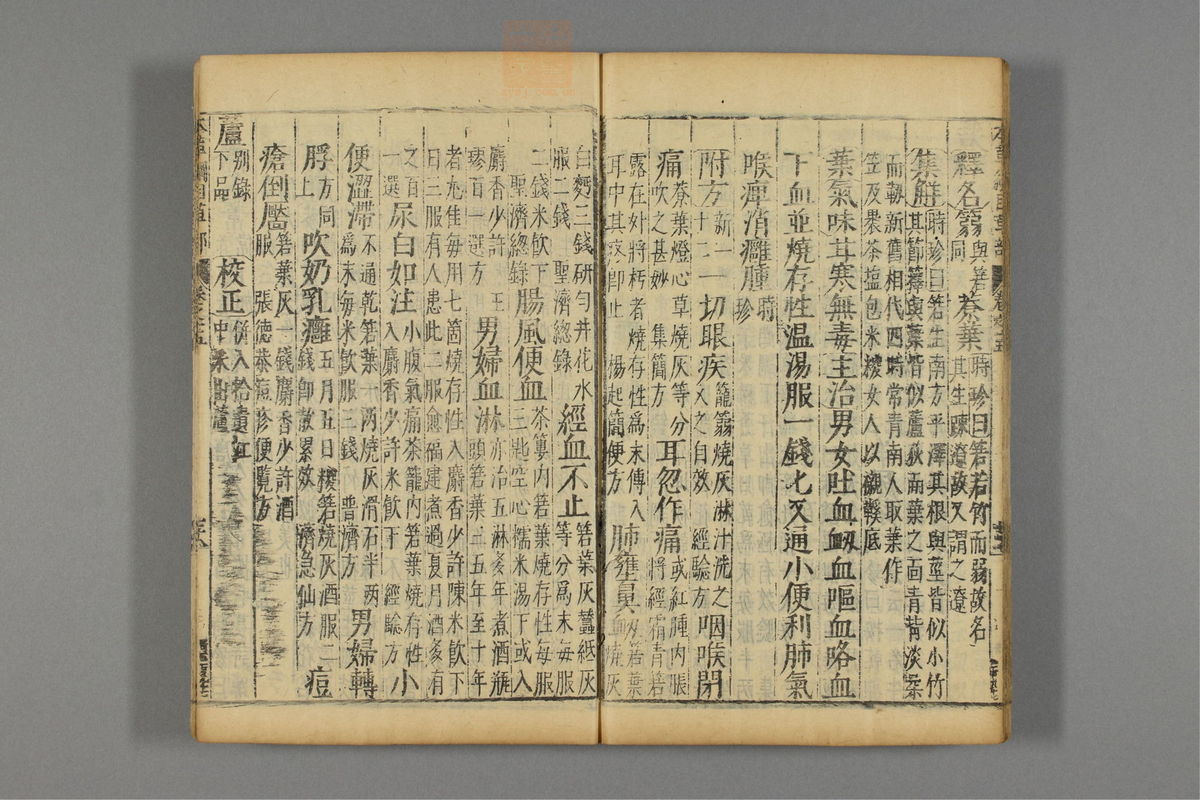 釋名篛與箬同䔋葉時珍曰箬若竹而弱故名其生疎遼故又謂之遼
集解時珍曰箬生南方平澤其根與莖皆似小竹其節籜與葉皆似蘆荻而葉之面青背淡柔
而靭新舊相代四時常青南人取葉作笠及裹茶塩包米糉女人以襯鞋底
葉氣味甘寒無毒主治男女吐血衂血嘔血咯血
下血並燒存性温湯服一錢匕又通小便利肺氣
喉痺消癰腫時珍
附方新一十二一切眼疾籠篛燒灰淋汁洗之久之自效 經驗方咽喉閉
痛䔋葉燈心草燒灰等分吹之甚妙 集簡方耳忽作痛或紅腫内脹將經霜青箬
露在外將朽者燒存性爲末傅入耳中其疼即止 楊起簡便方肺壅鼻衂箬葉燒灰
白麪三錢研匀井花水服二錢 聖濟總錄經血不止箬葉灰蠶紙灰等分爲末每服
二錢米飲下聖濟總錄腸風便血茶簍内箬葉燒存性每服三匙空心糯米湯下或入
麝香少許 王璆百一選方男婦血淋亦治五淋多年煮酒瓶頭箬葉三五年至十年
者尤佳每用七箇燒存性入麝香少許陳米飲下日三服有人患此二服愈福建煮過夏月酒多有
之百一選方尿白如注小腹氣痛茶籠内箬葉燒存性入麝香少許米飲下 經驗方小
便澀滯不通乾箬葉一兩燒灰滑石半兩爲末每米飲服三錢 普濟方男婦轉
脬方同上吹奶乳癰五月五日糉箬燒灰酒服二錢即散累效 濟急仙方痘
瘡倒黶箬葉灰一錢麝香少許酒服 張德恭痘疹便覽方
蘆別錄下品校正併入拾遺江中采出蘆